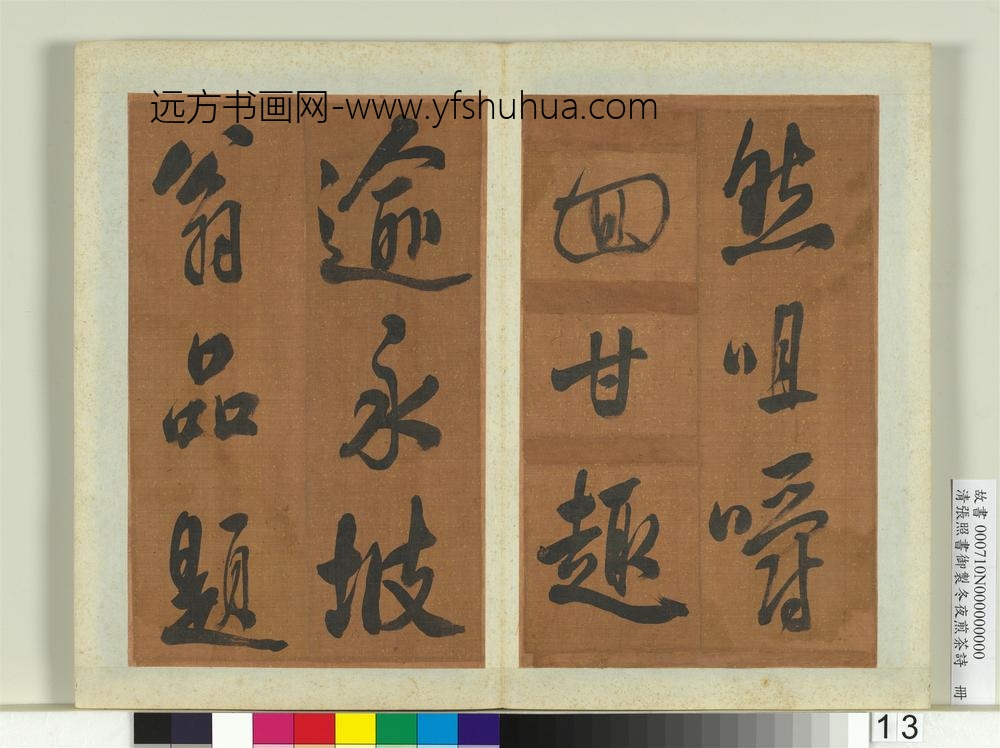 远方书画网-www.yfshuhua.com
然咀嚼
回甘趣
逾永坡
翁品題
故書 000710N000000000
清張照書御製冬夜煎茶詩 冊
13